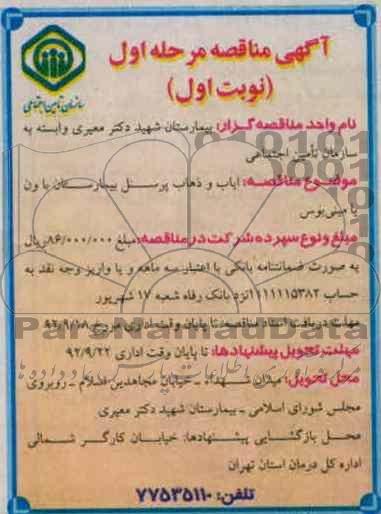 آگهی مناقصه مرحله اول
(نوبت اول)
سازمان تأمین اجتماعی
نام واحد مناقصه گزار: بیمارستان شهید دکتر معیری وابسته به
سازمان تأمین اجتماعی
موضوع مناقصه: ایاب و ذهاب پرسنل بیمارستان با ون
یا مینی بوس
مبلغ و نوع سپرده شرکت در مناقصه: مبلغ ۸۶/۰۰۰/۰۰۰ ریال
به صورت ضمانتنامه بانکی با اعتبار سه ماهه و یا واریز وجه نقد به
حساب ۱۰۱۱۱۱۵۳۸۲ نزد بانک رفاه شعبه ۱۷ شهریور
مهلت دریافت اسناد مناقصه: تا پایان وقت اداری مورخ ۹۲/۹/۱۸
مهلت تحویل پیشنهادها: تا پایان وقت اداری ۹۲/۹/۲۲
محل تحویل: میدان شهداء - خیابان مجاهدین اسلام - روبروی
مجلس شورای اسلامی - بیمارستان شهید دکتر معیری
محل بازگشایی پیشنهادها: خیابان کارگر شمالی
اداره کل درمان استان تهران
تلفن: ۷۷۵۳۵۱۱۰
ParsNamadData